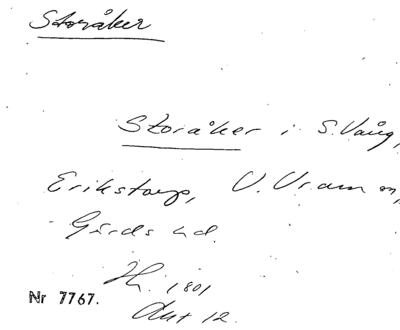 Storåker
Storåker i S. Vång,
Erikstorp, V. Vram sn,
Gärds hd.
Hi. 1801
Akt 12.
Nr 7767.